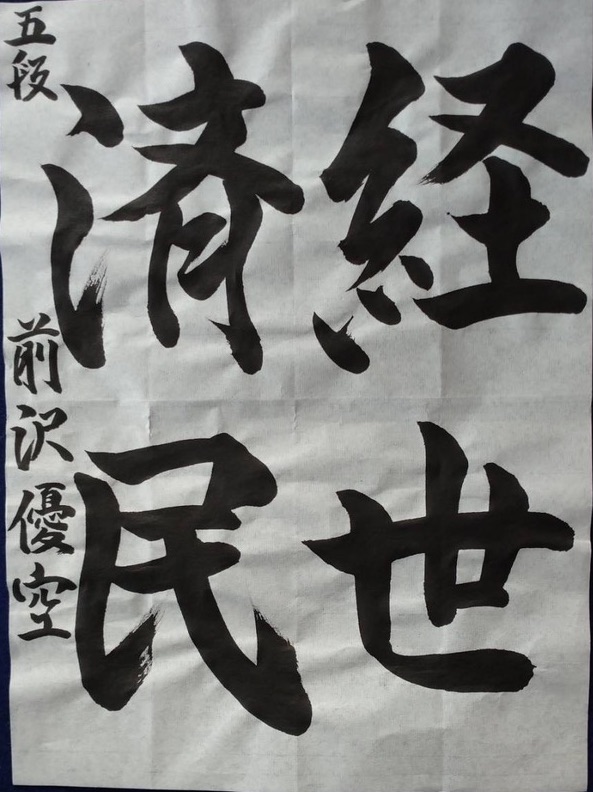 経世
済民
五段 前沢優空